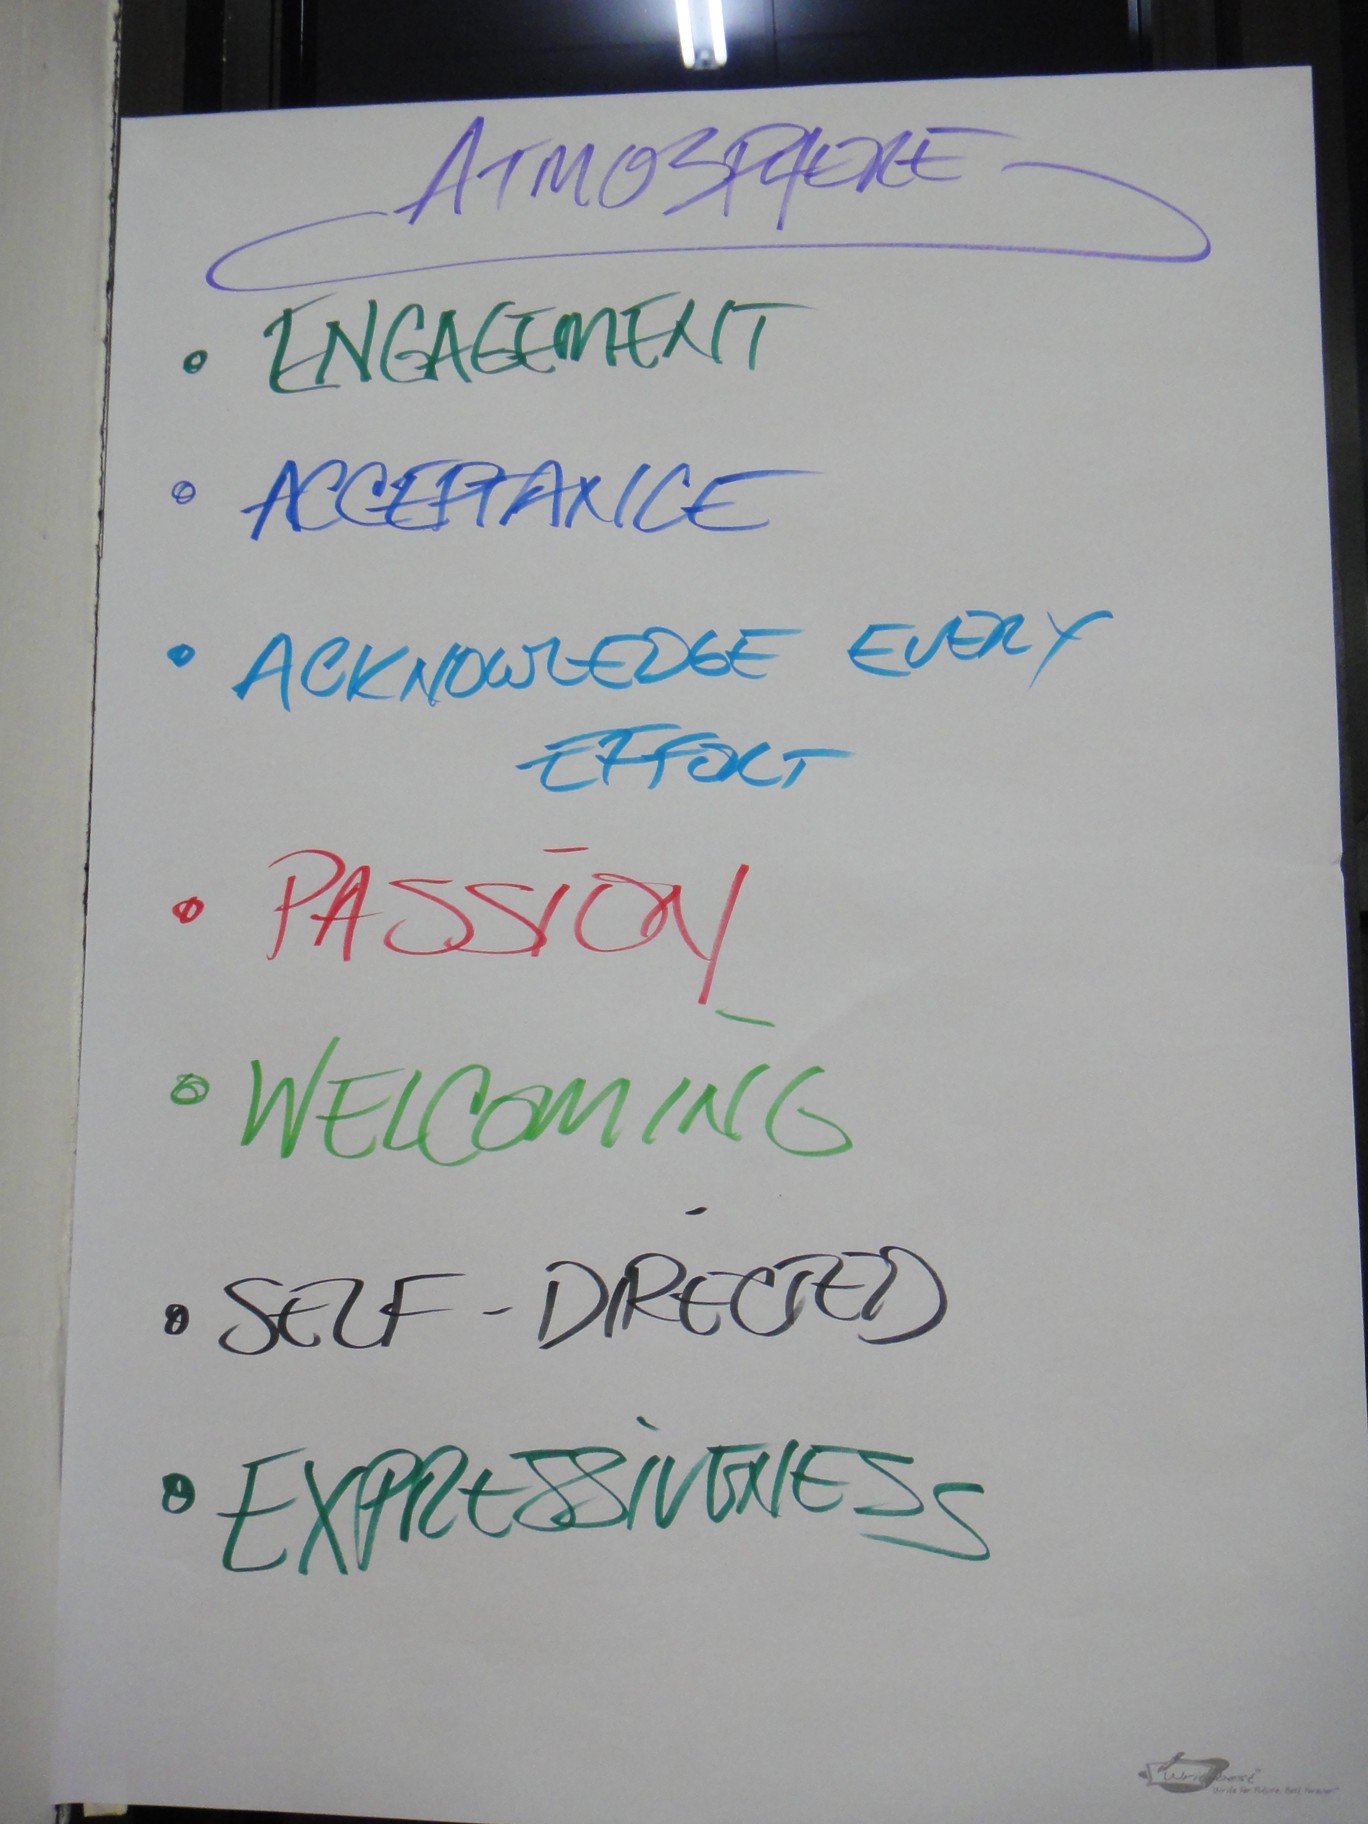 ATMOSPHERE
• ENGAGEMENT
• ACCEPTANCE
• ACKNOWLEDGE EVERY
EFFORT
• PASSION
• WELCOMING
• SELF-DIRECTED
• EXPRESSIVENESS
Writebest
Write for Future, Best Forever